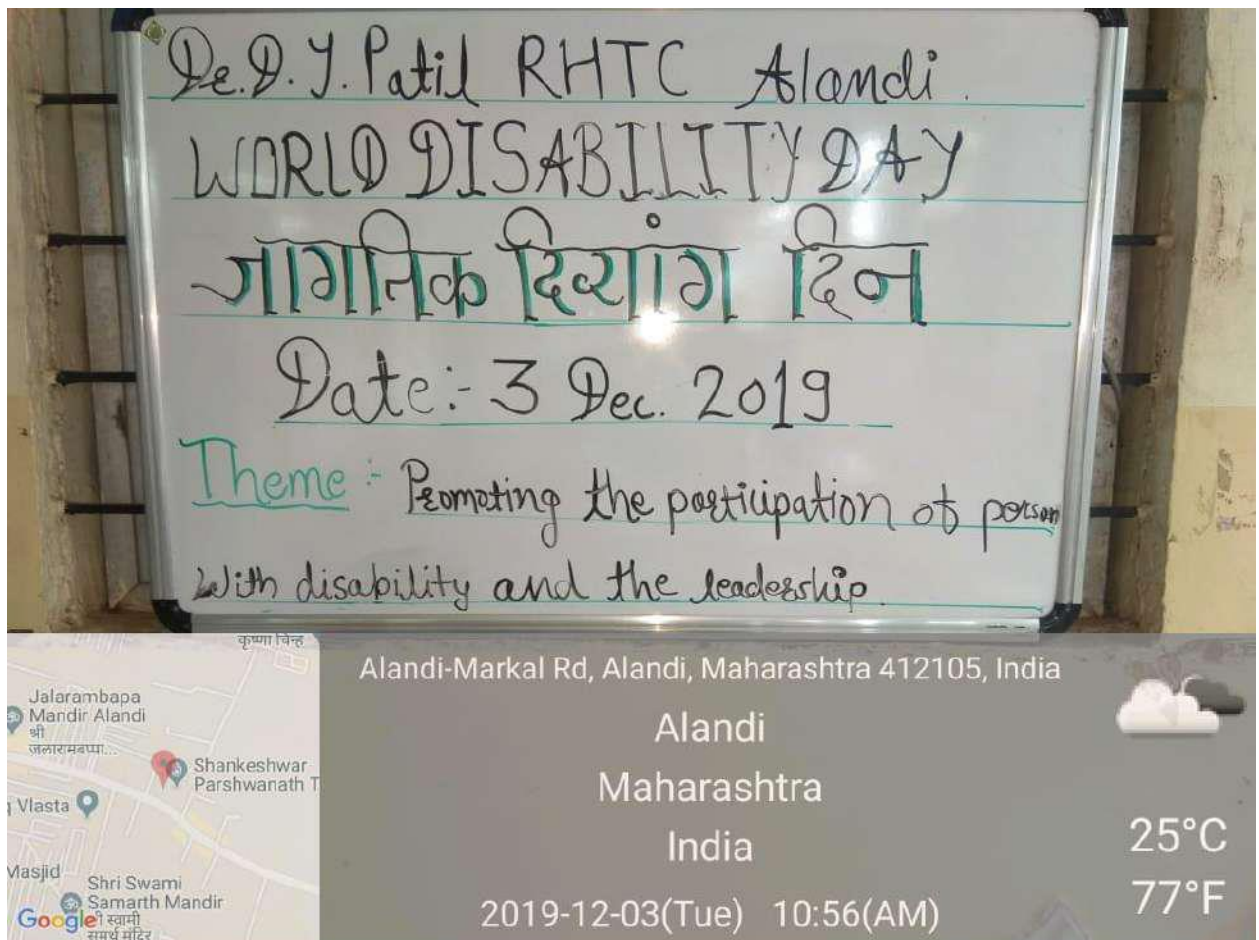 Dr. D. Y. Patil RHTC Alandi.
WORLD DISABILITY DAY
जागतिक दिव्यांग दिन
Date:- 3 Dec. 2019
Theme:- Promoting the participation of person
With disability and the leadership.
कृष्णा चिन्ह
Jalarambapa
Mandir Alandi
श्री
जलारामबप्पा...
Shankeshwar
Parshwanath T
Vlasta
Masjid
Shri Swami
Samarth Mandir
श्री स्वामी
समर्थ मंदिर
Google
Alandi-Markal Rd, Alandi, Maharashtra 412105, India
Alandi
Maharashtra
India
2019-12-03(Tue) 10:56(AM)
25°C
77°F